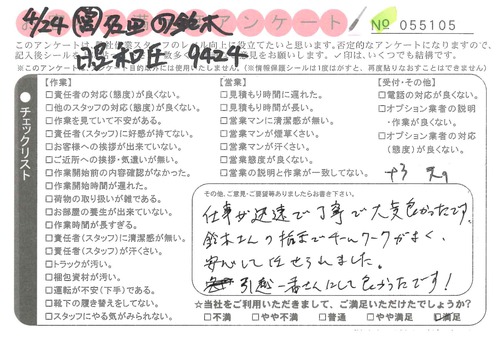 4/24
鈴木
アンケート
No 055105
9424
このアンケートは、
レベル向上に役立てたいと思います。否定的なアンケートになりますので、
記入後シールを
見をお願いします。✓印は、いくつでも結構です。
※このアンケートは
目的以外には使用いたしません。(※情報保護シールは1度はがすと、再度貼りなおすことはできません)
チェックリスト
【作業】
□責任者の対応(態度)が良くない。
□他のスタッフの対応(態度)が良くない。
□作業を見ていて不安がある。
□責任者(スタッフ)に好感が持てない。
□お客様への挨拶が出来ていない。
□ご近所への挨拶・気遣いが無い。
□作業開始前の内容確認がなかった。
□作業開始時間が遅れた。
□荷物の取り扱いが雑である。
□お部屋の養生が出来ていない。
□作業時間が長すぎる。
□責任者(スタッフ)に清潔感が無い。
□責任者(スタッフ)が汗くさい。
□トラックが汚い。
□梱包資材が汚い。
□運転が不安(下手)である。
□靴下の履き替えをしてない。
□スタッフにやる気がみられない。
【営業】
□見積もり時間に遅れた。
□見積もり時間が長い。
□営業マンに清潔感が無い。
□営業マンが煙草くさい。
□営業マンが汗くさい。
□営業態度が良くない。
□営業の説明と作業が一致してない。
【受付・その他】
□電話の対応が良くない。
□オプション業者の説明
・作業が良くない。
□オプション業者の対応
(態度)が良くない。
その他、ご意見・ご要望等ありましたらお書き下さい。
仕事が迅速で丁寧で大変良かったです。
鈴木さんの指示でチームワークがよく、
安心して任せられました。
引越一番さんにして良かったです!
☆当社をご利用いただきまして、ご満足いただけたでしょうか?
□不満 □やや不満 □普通 □やや満足 ☑満足